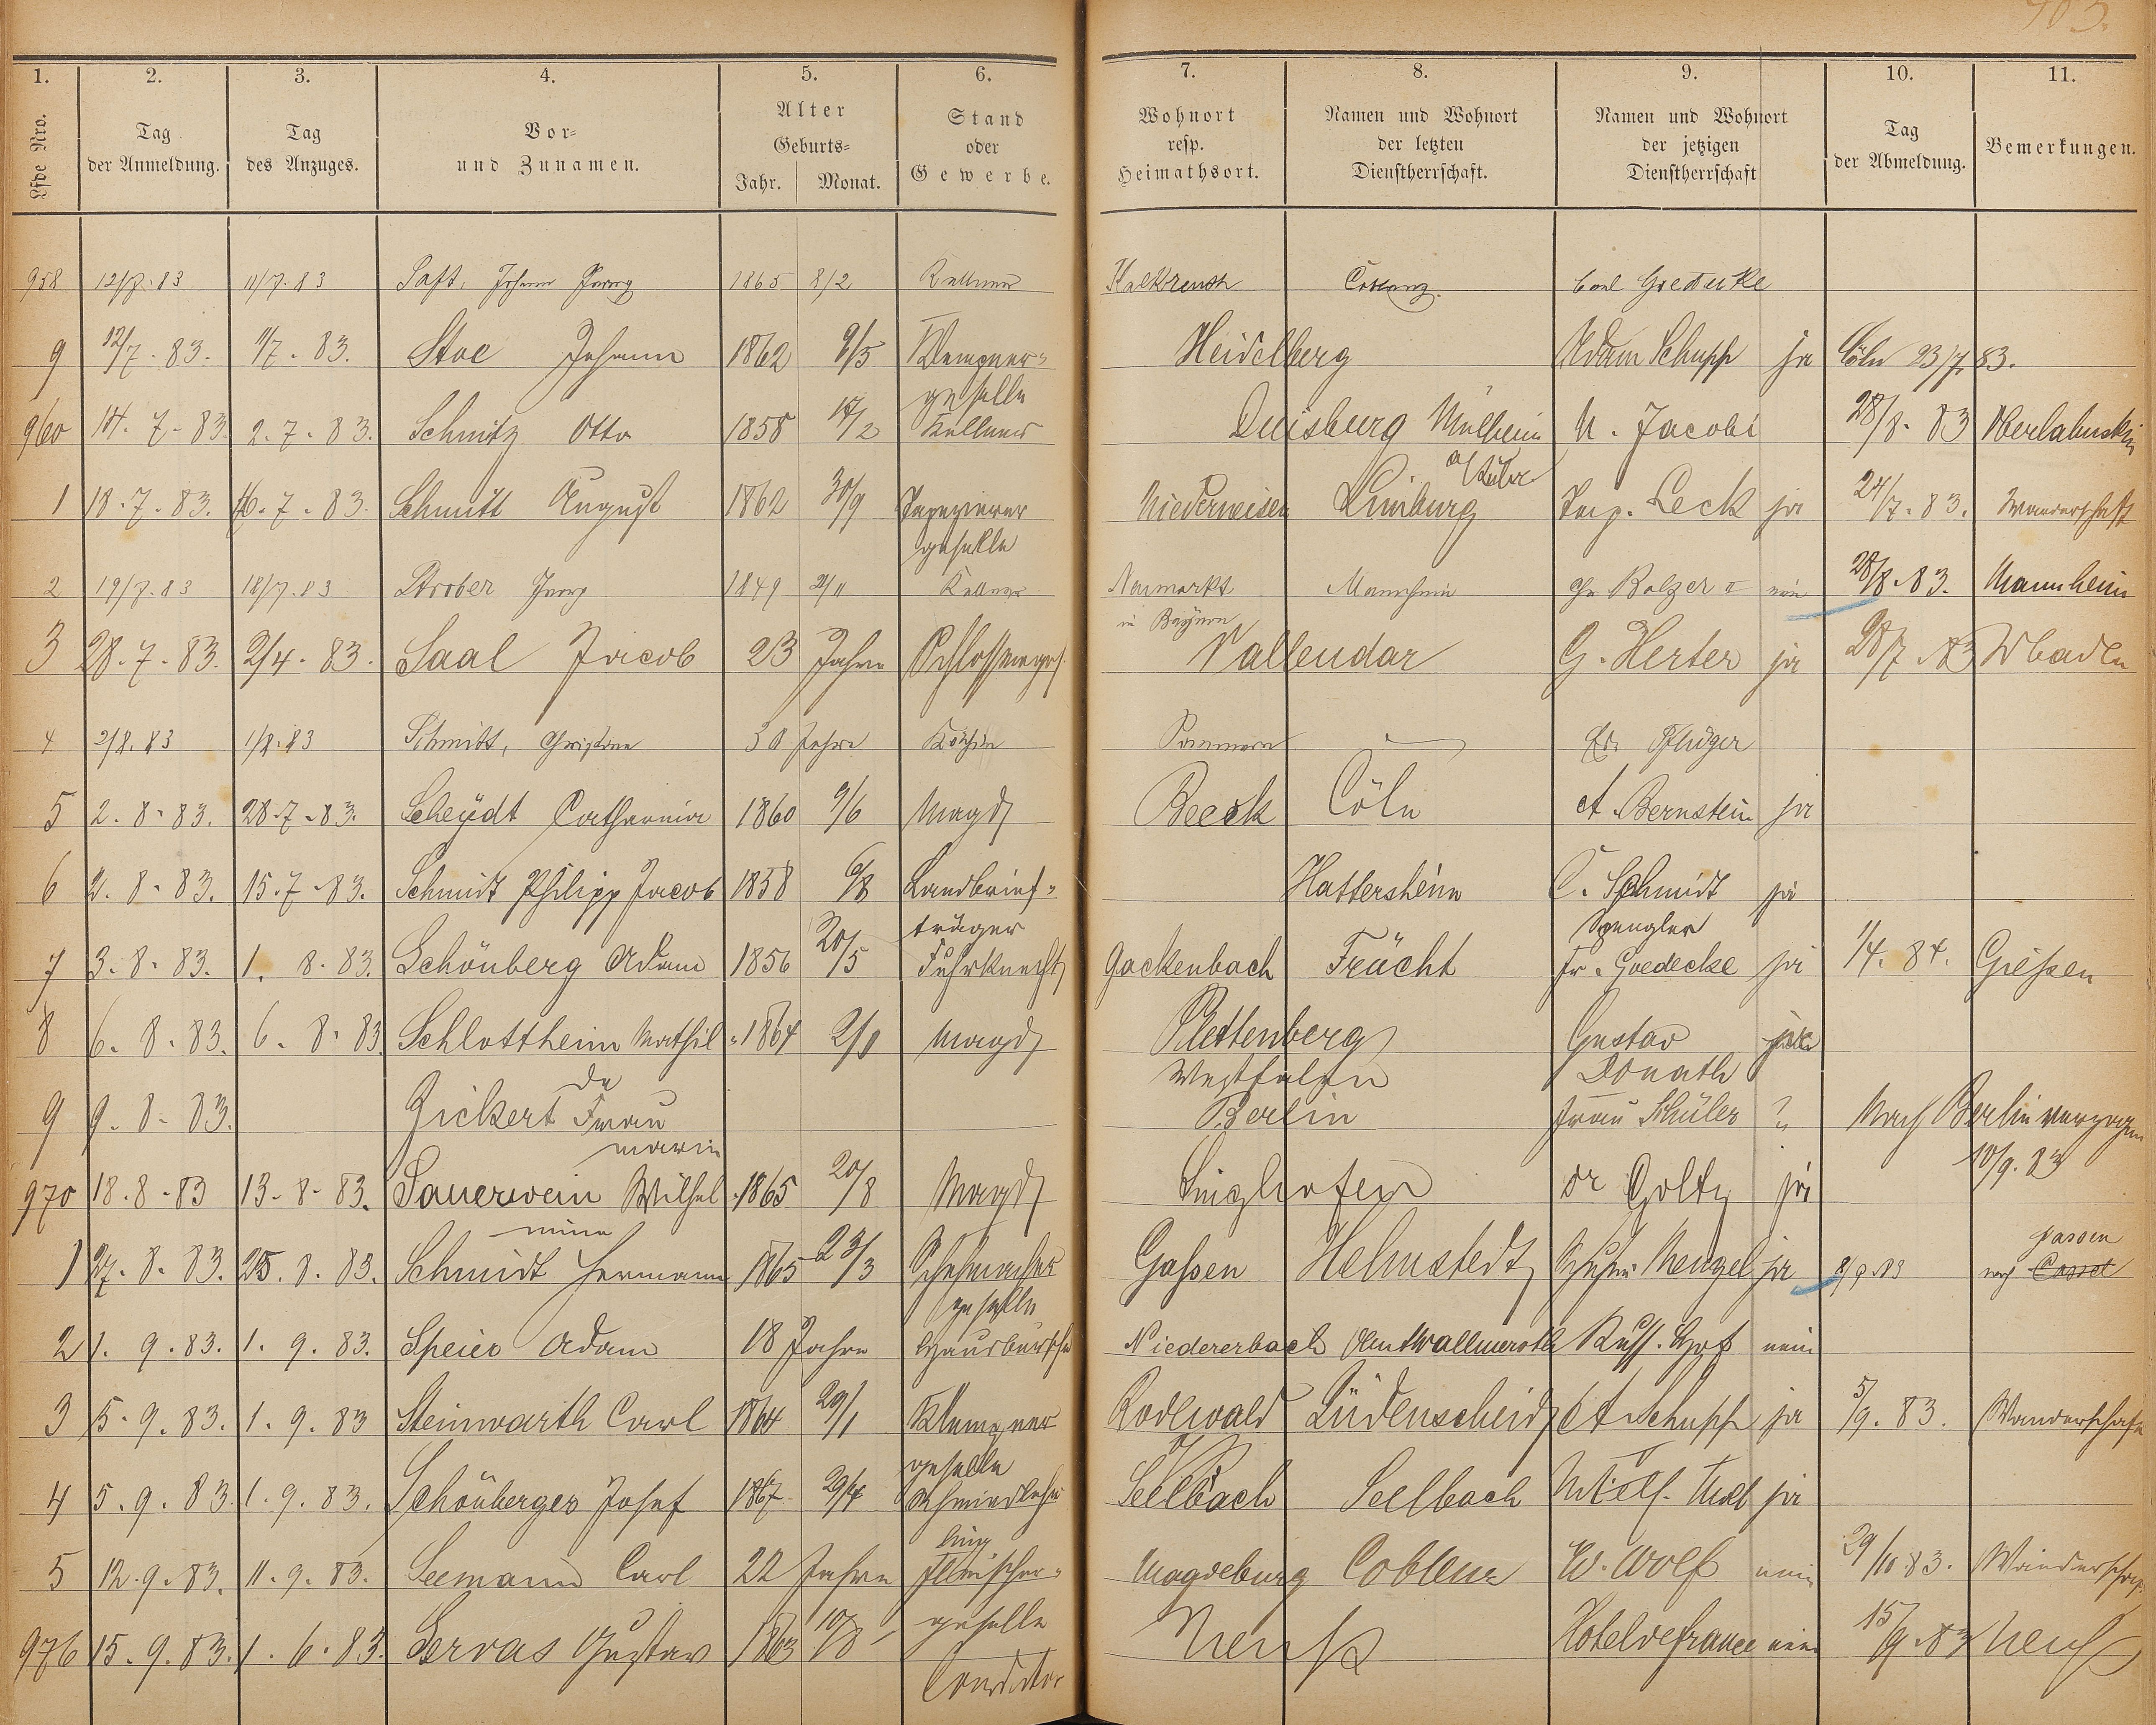 403.
1. 2. 3. 4. 5. 6. 7. 8. 9. 10. 11.
Lfde Nro. Tag der Anmeldung. Tag des Anzuges. Vor- und Zunamen. Alter Geburts- Jahr. Monat. Stand oder Gewerbe. Wohnort resp. Heimathsort. Namen und Wohnort der letzten Dienstherrschaft. Namen und Wohnort der jetzigen Dienstherrschaft Tag der Abmeldung. Bemerkungen.
958 12/7.83 11/7.83 Saft, Johann Georg 1865 8/2 Kellner Kalkreuth Carl Goedecke
9 12/7.83. 1/7.83. Stoe Johann 1862 9/5 Klempner- Heidelberg Adam Schupp ja Cöln 23/7.83.
geselle
960 14.7-83. 2.7.83. Schmitz Otto 1858 17/2 Kellner Duisburg Mülheim N. Jacobi 28/8.83 Oberlahnstein
a/Ruhr
1 18.7.83. 16.7.83. Schmitt August 1862 30/9 Tapezierer Niederweisen Limburg Leck ja 24/7.83. Wanderschaft
geselle
2 19/7.83 18/7.83 Strober Georg 1849 2/11 Kellner Neumarkt Mannheim Chr Balzer nein 28/8.83. Mannheim
in Bayern
3 28.7.83. 2/4.83. Saal Jacob 23 Jahre Schlosserges. Vallendar G. Herter ja 28/7.83 Wbaden
4 2/8.83 1/8.83 Schmitt, Christine 30 Jahre Köchin Pommern Pflüger
5 2.8.83. 28.7.83. Scheydt Catharina 1860 9/6 Magd Beeck Cöln A. Bernstein ja
6 2.8.83. 15.7.83. Schmidt Philipp Jacob 1858 6/8 Landbrief- Hattersheim C. Schmidt ja
träger Spengler
7 3.8.83. 1.8.83. Schönberg Adam 1856 20/5 Fuhrknecht Gackenbach Frücht Fr. Goedecke ja 1/4.84. Gießen
8 6.8.83. 6.8.83 Schlottheim Mathil- 1864 2/1 Magd Plettenberg Gustav ja
de Westfalen Donath
9 9.8.83. Zickert Frau Berlin Frau Schüler ? Nach Berlin verzogen
Marie 10/9.83
970 18.8-83 13-8-83. Sauerwein Wilhel- 1865 20/8 Magd Singhofen Dr Goltz ja
mine
1 27.8.83. 25.8.83. Schmidt Hermann 1865 23/3 Schuhmacher Gaßen Helmstedt Schuhm. Menzel ja 8/9.83 nach Cassel
geselle
2 1.9.83. 1.9.83. Speier Adam 18 Jahre Hausbursche Niedererbach Amt Wallmeroth Russ. Hof nein
3 5.9.83. 1.9.83 Steinwarth Carl 1864 29/1 Klempner Rodewald Lüdenscheid A Schupp ja 5/9.83. Wanderschaft
geselle
4 5.9.83. 1.9.83. Schönberger Josef 1867 29/4 Schmiedlehr Seelbach Seelbach ja
ling
5 12.9.83. 11.9.83. Seemann Carl 22 Jahre Fleischer- Magdeburg Coblenz W. Wolf nein 29/10.83. Wanderschaft
geselle
976 15.9.83. 1.6.83. Servas Gustav 1863 10/8 Neuß Hotel de france nein 15/9.83 Neuß
Conditor